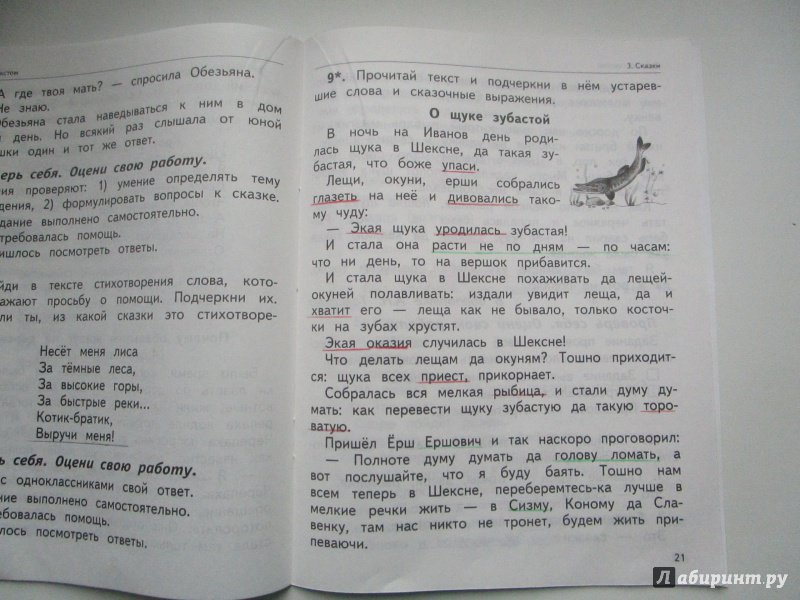 кстом
А где твоя мать? — спросила Обезьяна.
Не знаю.
Обезьяна стала наведываться к ним в дом
день. Но всякий раз слышала от юной
шки один и тот же ответ.
ерь себя. Оцени свою работу.
ния проверяют: 1) умение определять тему
дения, 2) формулировать вопросы к сказке.
дание выполнено самостоятельно.
требовалась помощь.
ишлось посмотреть ответы.
йди в тексте стихотворения слова, кото-
ажают просьбу о помощи. Подчеркни их.
ли ты, из какой сказки это стихотворе-
Несёт меня лиса
За тёмные леса,
За высокие горы,
За быстрые реки...
Котик-братик,
Выручи меня!
ь себя. Оцени свою работу.
с одноклассниками свой ответ.
ние выполнено самостоятельно.
ребовалась помощь.
лось посмотреть ответы.
3. Сказки
9*. Прочитай текст и подчеркни в нём устарев-
шие слова и сказочные выражения.
О щуке зубастой
В ночь на Иванов день роди-
лась щука в Шексне, да такая зу-
бастая, что боже упаси.
Лещи, окуни, ерши собрались
глазеть на неё и дивовались тако-
му чуду:
— Экая щука уродилась зубастая!
И стала она расти не по дням — по часам:
что ни день, то на вершок прибавится.
И стала щука в Шексне похаживать да лещей-
окуней полавливать: издали увидит леща, да и
хватит его — леща как не бывало, только косточ-
ки на зубах хрустят.
Экая оказия случилась в Шексне!
Что делать лещам да окуням? Тошно приходит-
ся: щука всех приест, прикорнает.
Собралась вся мелкая рыбица, и стали думу ду-
мать: как перевести щуку зубастую да такую торо-
ватую.
Пришёл Ёрш Ершович и так наскоро проговорил:
— Полноте думу думать да голову ломать, а
вот послушайте, что я буду баять. Тошно нам
всем теперь в Шексне, переберемтесь-ка лучше в
мелкие речки жить — в Сизму, Коному да Сла-
венку, там нас никто не тронет, будем жить при-
певаючи.
21
Лабиринт.ру